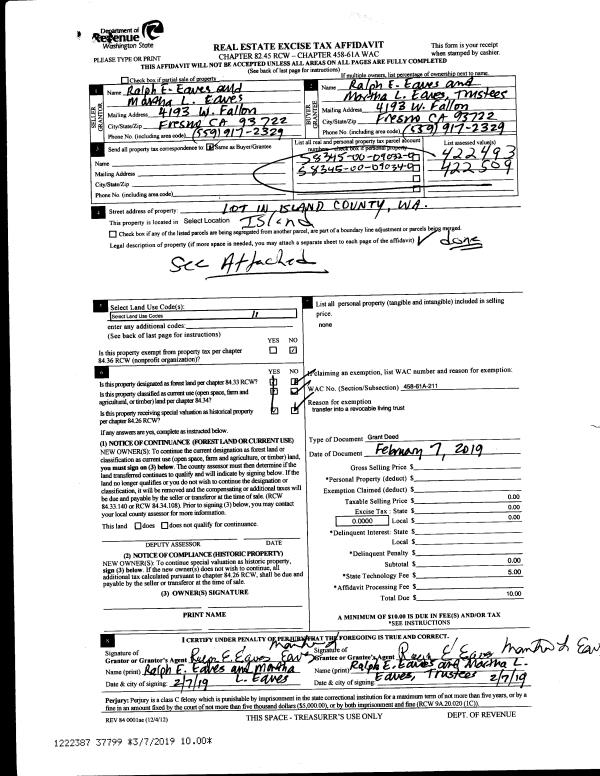 Department of
Revenue
Washington State
PLEASE TYPE OR PRINT
REAL ESTATE EXCISE TAX AFFIDAVIT
CHAPTER 82.45 RCW – CHAPTER 458-61A WAC
This form is your receipt
when stamped by cashier.
THIS AFFIDAVIT WILL NOT BE ACCEPTED UNLESS ALL AREAS ON ALL PAGES ARE FULLY COMPLETED
(See back of last page for instructions)
Check box if partial sale of property
If multiple owners, list percentage of ownership next to name.
SELLER GRANTOR
1 Name Ralph E. Eaves and
Martha L. Eaves
Mailing Address 4193 W. Fallon
City/State/Zip Fresno CA 93722
Phone No. (including area code) (559) 917-2329
BUYER GRANTEE
2 Name Ralph E. Eaves and
Martha L. Eaves, Trustees
Mailing Address 4193 W. Fallon
City/State/Zip Fresno CA 93722
Phone No. (including area code) (559) 917-2329
3 Send all property tax correspondence to: Same as Buyer/Grantee
Name
Mailing Address
City/State/Zip
Phone No. (including area code)
List all real and personal property tax parcel account
numbers – check box if personal property
58345-00-09032-0
58345-00-09034-0
List assessed value(s)
422493
422509
4 Street address of property: LOT IN ISLAND COUNTY, WA.
This property is located in Select Location Island
Check box if any of the listed parcels are being segregated from another parcel, are part of a boundary line adjustment or parcels being merged.
Legal description of property (if more space is needed, you may attach a separate sheet to each page of the affidavit) done
See Attached
5 Select Land Use Code(s):
Select Land Use Codes
enter any additional codes:
(See back of last page for instructions)
YES NO
Is this property exempt from property tax per chapter
84.36 RCW (nonprofit organization)?
6
YES NO
Is this property designated as forest land per chapter 84.33 RCW?
Is this property classified as current use (open space, farm and
agricultural, or timber) land per chapter 84.34?
Is this property receiving special valuation as historical property
per chapter 84.26 RCW?
If any answers are yes, complete as instructed below.
(1) NOTICE OF CONTINUANCE (FOREST LAND OR CURRENT USE)
NEW OWNER(S): To continue the current designation as forest land or
classification as current use (open space, farm and agriculture, or timber) land,
you must sign on (3) below. The county assessor must then determine if the
land transferred continues to qualify and will indicate by signing below. If the
land no longer qualifies or you do not wish to continue the designation or
classification, it will be removed and the compensating or additional taxes will
be due and payable by the seller or transferor at the time of sale. (RCW
84.33.140 or RCW 84.34.108). Prior to signing (3) below, you may contact
your local county assessor for more information.
This land does does not qualify for continuance.
DEPUTY ASSESSOR DATE
(2) NOTICE OF COMPLIANCE (HISTORIC PROPERTY)
NEW OWNER(S): To continue special valuation as historic property,
sign (3) below. If the new owner(s) does not wish to continue, all
additional tax calculated pursuant to chapter 84.26 RCW, shall be due and
payable by the seller or transferor at the time of sale.
(3) OWNER(S) SIGNATURE
PRINT NAME
7 List all personal property (tangible and intangible) included in selling
price.
none
If claiming an exemption, list WAC number and reason for exemption:
WAC No. (Section/Subsection) 458-61A-211
Reason for exemption
transfer into a revocable living trust
Type of Document Grant Deed
Date of Document February 7, 2019
Gross Selling Price $
*Personal Property (deduct) $
Exemption Claimed (deduct) $
Taxable Selling Price $ 0.00
Excise Tax : State $ 0.00
0.0000 Local $ 0.00
*Delinquent Interest: State $
Local $
*Delinquent Penalty $
Subtotal $ 0.00
*State Technology Fee $ 5.00
*Affidavit Processing Fee $
Total Due $ 10.00
A MINIMUM OF $10.00 IS DUE IN FEE(S) AND/OR TAX
*SEE INSTRUCTIONS
8 I CERTIFY UNDER PENALTY OF PERJURY THAT THE FOREGOING IS TRUE AND CORRECT.
Signature of
Grantor or Grantor's Agent Ralph E. Eaves Martha L Eaves
Name (print) Ralph E. Eaves and Martha L. Eaves
Date & city of signing: 2/7/19
Signature of
Grantee or Grantee's Agent Ralph E. Eaves Martha L Eav
Name (print) Ralph E. Eaves and Martha L.
Eaves, Trustees
Date & city of signing: 2/7/19
Perjury: Perjury is a class C felony which is punishable by imprisonment in the state correctional institution for a maximum term of not more than five years, or by a
fine in an amount fixed by the court of not more than five thousand dollars ($5,000.00), or by both imprisonment and fine (RCW 9A.20.020 (1C)).
REV 84 0001ae (12/4/12)
THIS SPACE - TREASURER'S USE ONLY
DEPT. OF REVENUE
1222387 37799 *3/7/2019 10.00*